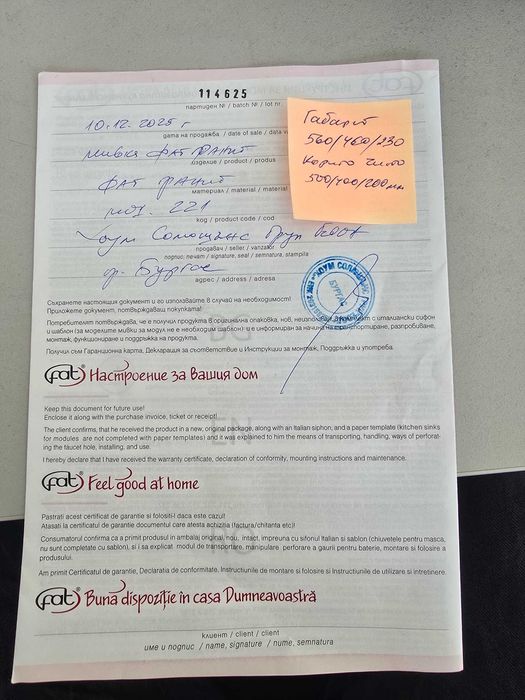 114625
партиден № / batch № / lot nr
10.12.2025 г
дата на продажба / date of sale / data v
мивка ФАТ ГРАНИТ
изделие / product / produs
ФАТ ГРАНИТ
материал / material / material
мод. 221
код / product code / cod
Хоум Солюшънс Груп ЕООД
продавач / seller / vanzator
подпис, печат / signature, seal / semnatura, stampila
гр. Бургас
адрес / address / adresa
Габарит
560/460/230
Корито чисто
500/400/200 мм
БУРГАС
Съхранете настоящия документ и го използвайте в случай на необходимост!
Приложете документ, потвърждаващ покупката!
Потребителят потвърждава, че е получил продукта в оригинална опаковка, нов, с италиански сифон
и шаблон (за моделите мивки за модул не е необходим шаблон) и е информиран за начина на транспортиране, разпробиване,
монтаж, сифониране и поддръжка на продукта.
Получих съм Гаранционна карта, Декларация за съответствие и Инструкции за монтаж, Поддръжка и употреба.
fat® Настроение за Вашия дом
Keep this document for future use!
Enclose it along with the purchase invoice, ticket or receipt!
The client confirms, that he received the product in a new, original package, along with an Italian siphon, and a paper template (kitchen sinks
for modules are not completed with paper templates) and it was explained to him the means of transporting, handling, ways of perforat-
ing the faucet hole, installing, and use.
I hereby declare that I have received the warranty certificate, declaration of conformity, mounting instructions and maintenance.
fat® Feel good at home
Pastrati acest certificat de garantie si folositi-l daca este cazul!
Atasati la certificatul de garantie documentul care atesta achizitia (factura/chitanta etc)!
Consumatorul confirma ca a primit produsul in ambalaj original, nou, intact, impreuna cu sifonul Italian si sablon (chiuvetele pentru masca,
nu sunt completate cu sablon), si i sa explicat modul de transportare, manipulare, perforare a gaurii pentru baterie, montare si folosire a
produsului.
Am primit Certificatul de garantie, Declaratia de conformitate, Instructiunile de montare si folosire si Instructiunile de utilizare si intretinere.
fat® Bună dispoziție în casa Dumneavoastră
клиент / client / client
име и подпис / name, signature / nume, semnatura